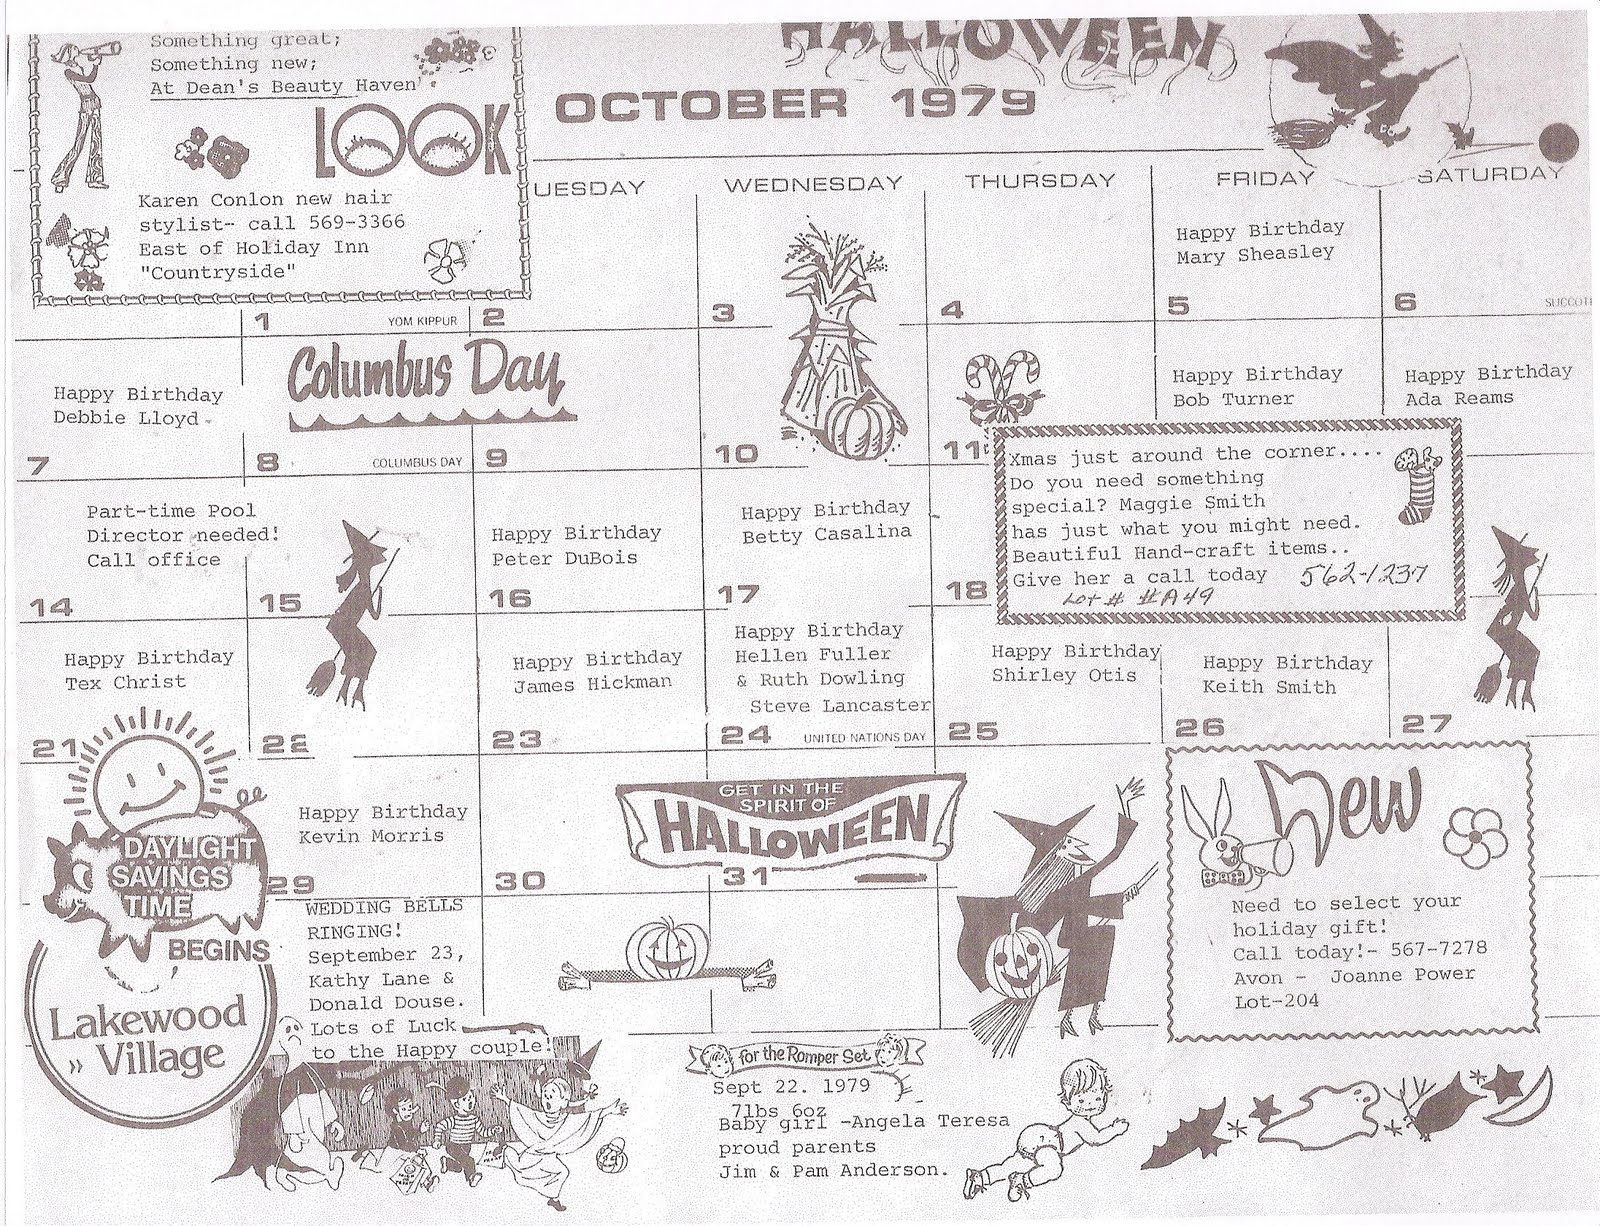 Something great;
Something new;
At Dean's Beauty Haven
LOOK
Karen Conlon new hair
stylist- call 569-3366
East of Holiday Inn
"Countryside"
HALLOWEEN
OCTOBER 1979
UESDAY WEDNESDAY THURSDAY FRIDAY SATURDAY
Happy Birthday
Mary Sheasley
1 YOM KIPPUR 2 3 4 5 6 SUCCOT
Happy Birthday
Debbie Lloyd
Columbus Day
Happy Birthday
Bob Turner
Happy Birthday
Ada Reams
7 8 COLUMBUS DAY 9 10 11
Xmas just around the corner....
Do you need something
special? Maggie Smith
has just what you might need.
Beautiful Hand-craft items..
Give her a call today 562-1237
Lot # #A49
Part-time Pool
Director needed!
Call office
Happy Birthday
Peter DuBois
Happy Birthday
Betty Casalina
14 15 16 17 18
Happy Birthday
Tex Christ
Happy Birthday
James Hickman
Happy Birthday
Hellen Fuller
& Ruth Dowling
Steve Lancaster
Happy Birthday
Shirley Otis
Happy Birthday
Keith Smith
21 22 23 24 UNITED NATIONS DAY 25 26 27
DAYLIGHT
SAVINGS
TIME
BEGINS
Happy Birthday
Kevin Morris
GET IN THE
SPIRIT OF
HALLOWEEN
29 30 31
New
Need to select your
holiday gift!
Call today!- 567-7278
Avon - Joanne Power
Lot-204
Lakewood
Village
WEDDING BELLS
RINGING!
September 23,
Kathy Lane &
Donald Douse.
Lots of Luck
to the Happy couple!
for the Romper Set
Sept 22. 1979
7lbs 6oz
Baby girl -Angela Teresa
proud parents
Jim & Pam Anderson.